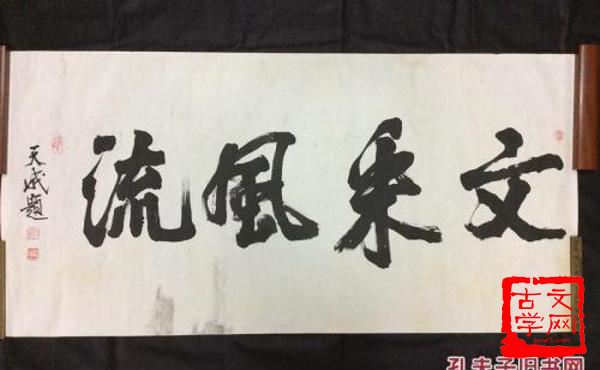 文采風流
天減題
古文
学网
孔夫子旧书网